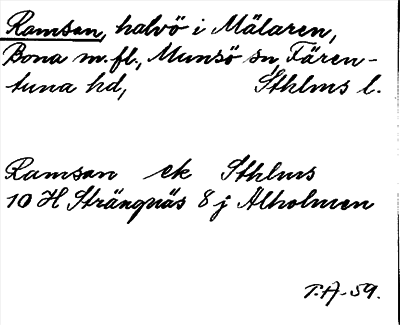 Ramsan, halvö i Mälaren,
Bona m.fl., Munsö sn, Fären-
tuna hd, Sthlms l.
Ramsan ek Sthlms
10 H Strängnäs 8 j Alholmen
T.A-59.